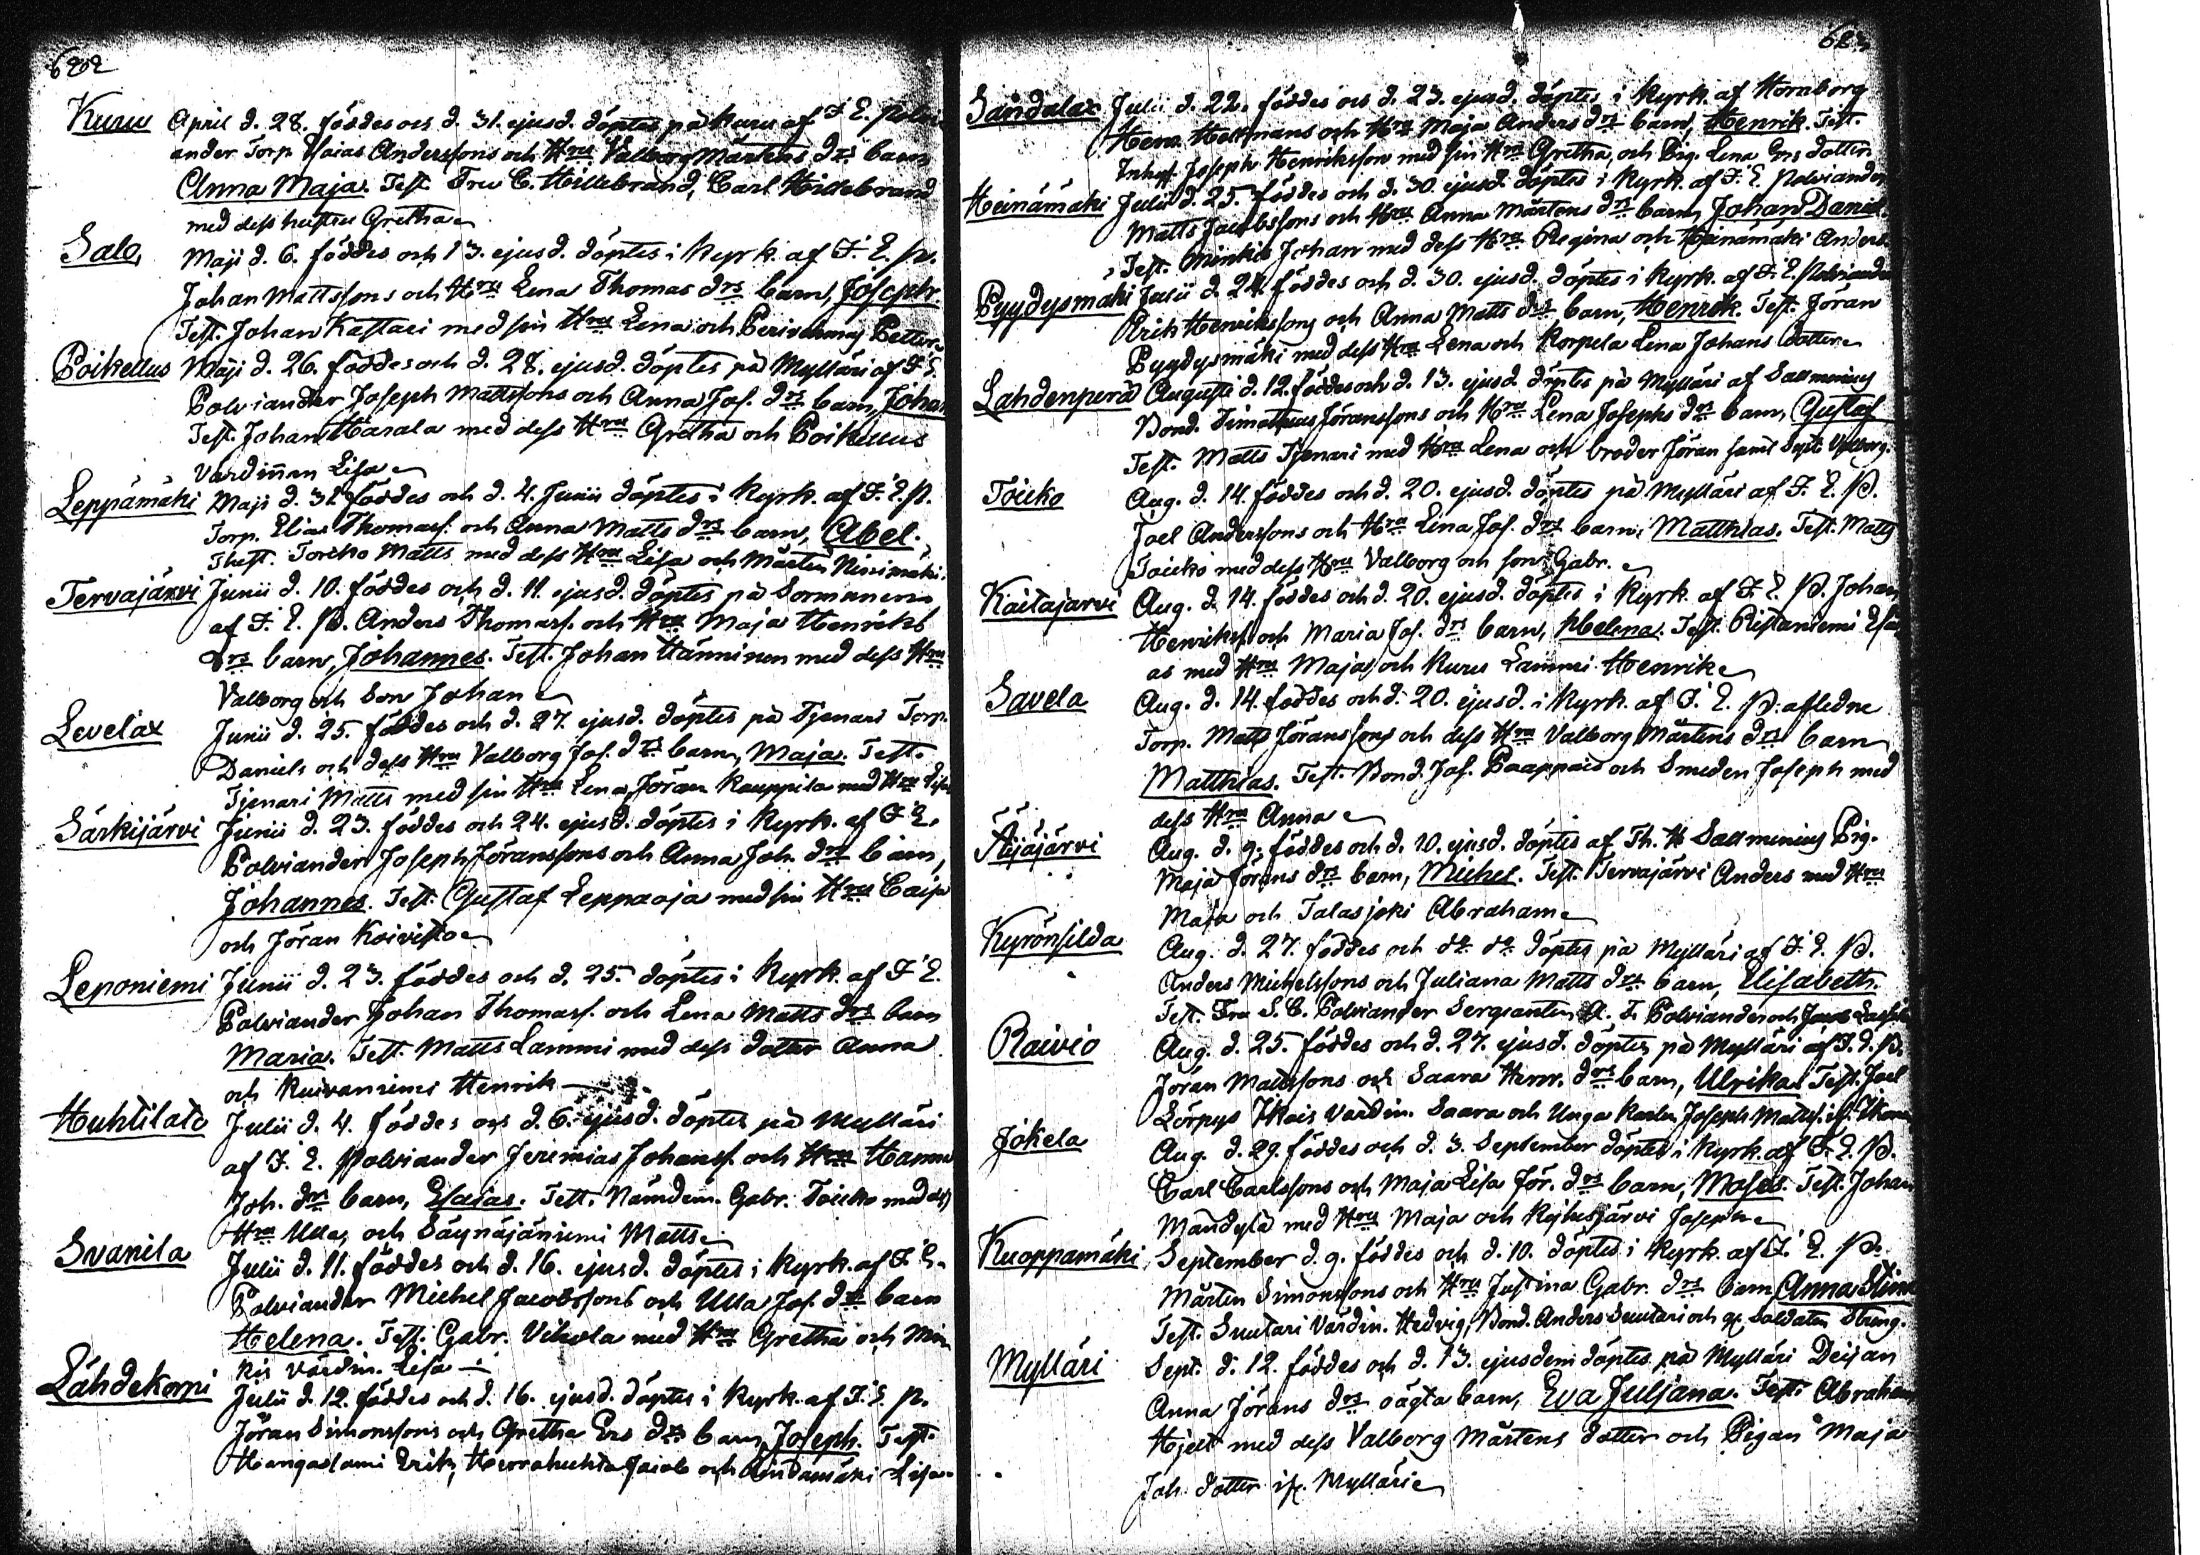 Kuru April d. 28. föddes och d. 31. ejusd. döptes på Kuru af F. E. Polvi-
ander Torp. Esaias Anderssons och Hru Valborg Mårtens drs barn
Anna Maja. Test. Fru C. Hillebrand, Carl Hillebrand
med dess hustru Gretha
Salo, Maji d. 6. föddes och 13. ejusd. döptes i Kyrk. af F. E. P.
Johan Mattssons och Hru Lena Thomas drs barn, Joseph.
Test. Johan Kastari med sin Hru Lena och Petter
Poikellus Maji d. 26. föddes och d. 28. ejusd. döptes på Mylläri af F. E.
Polviander Joseph Mattssons och Anna Jos. drs barn, Johan
Test. Johan Harala med dess Hru Gretha och Poikellus
Värdinnan Lisa
Leppämäki Maji d. 31 föddes och d. 4. Junii döptes i Kyrk. af F. E. P.
Torp. Elias Thomass. och Anna Matts drs barn, Abel.
Thest. Toicko Matts med dess Hru Lisa och Mårten Ninimäki.
Tervajärvi Junii d. 10. föddes och d. 11. ejusd. döptes på Sormunen
af F. E. P. Anders Thomass. och Hru Maja Henriks
drs barn, Johannes. Test. Johan Hänninen med dess Hru
Valborg och Son Johan
Levelax Junii d. 25. föddes och d. 27. ejusd. döptes på Tjenari Torp.
Daniels och dess Hru Valborg Jos. drs barn, Maja. Test.
Tjenari Matts med sin Hru Lena, Jöran Kauppila med Hru Lisa
Särkijärvi Junii d. 23. föddes och 24. ejusd. döptes i Kyrk. af F. E.
Polviander Joseph Jöranssons och Anna Joh. drs barn,
Johannes. Test. Gustaf Leppaoja med sin Hru Caisa
och Jöran Koivisto
Leponiemi Junii d. 23. föddes och d. 25. döptes i Kyrk. af F. E.
Polviander Johan Thomass. och Lena Matts drs barn
Maria. Test. Matts Lammi med dess dotter Anna
och Kuivaniemi Henrik
Huhtilato Julii d. 4. föddes och d. 6. ejusd. döptes på Mylläri
af F. E. Polviander Jeremias Johanss. och Hru Hanna
Joh. drs barn, Esaias. Test. Nämdem. Gabr. Toicko med dess
Hru Ulla, och Säynäjäniemi Matts
Svanila Julii d. 11. föddes och d. 16. ejusd. döptes i Kyrk. af F. E.
Polviander Michel Jacobssons och Ulla Jos. drs barn
Helena. Test. Gabr. Vihola med Hru Gretha och Min
kis värdin. Lisa
Lähdekorpi Julii d. 12. föddes och d. 16. ejusd. döptes i Kyrk. af F. E. P.
Jöran Simonssons och Gretha Ers drs barn, Joseph. Test.
Hangaslami Erik, Herrahuhta Jacob och Lindamäki Lisa
623
Sandalax Julii d. 22. föddes och d. 23. ejusd. döptes i Kyrk. af Hornborg
Henr. Hermans och Hru Maja Anders drs barn, Henrik. Test.
Inhys. Joseph Henriksson med sin Hru Gretha, och Pig. Lena Ers dotter
Heinämäki Julii d. 25. föddes och d. 30. ejusd. döptes i Kyrk. af F. E. Polviander
Matts Jacobssons och Hru Anna Mårtens drs barn, Johan Daniel.
Test. Minkis Johan med dess Hru Regina och Heinämäki Anders
Pygdysmäki Julii d. 24. föddes och d. 30. ejusd. döptes i Kyrk. af F. E. Polviander
Erik Henrikssons och Anna Matts drs barn, Henrik. Test. Jöran
Pygdysmäki med dess Hru Lena och Korpela Lena Johans dotter
Lahdenperä Augusti d. 12. föddes och d. 13. ejusd. döptes på Mylläri af Sallmenius
Bond. Timotheus Jöranssons och Hru Lena Josephs drs barn, Gustaf
Test. Matts Tjenari med Hru Lena och broder Jöran samt Syst. Valborg.
Toicko Aug. d. 14. föddes och d. 20. ejusd. döptes på Mylläri af F. E. P.
Joel Anderssons och Hru Lina Jos. drs barn, Matthias. Test. Matts
Toicko med dess Hru Valborg och son Gabr.
Kaitajarvi Aug. d. 14. föddes och d. 20. ejusd. döptes i Kyrk. af F. E. P. Johan
Henrikss. och Maria Jos. drs barn, Helena. Test. Ristaniemi Esai
as med Hru Maja, och Kuru Lammi Henrik
Savela Aug. d. 14. föddes och d. 20. ejusd. i Kyrk. af F. E. P. afledne
Torp. Matts Jöranssons och dess Hru Valborg Mårtens drs barn
Matthias. Test. Bond. Jos. Paappais och Smeden Joseph med
dess Hru Anna
Äijäjärvi Aug. d. 9. föddes och d. 10. ejusd. döptes af Th. H Sallmenius Pig.
Maja Jörans drs barn, Michel. Test. Tervajärvi Anders med Hru
Maja och Talasjoki Abraham
Kyrönsilda Aug. d. 27. föddes och do do döptes på Mylläri af F. E. P.
Anders Michelssons och Juliana Matts drs barn, Elisabeth.
Test. Fru S. C. Polviander Sergeanten A. F. Polviander och
Raivio Aug. d. 25. föddes och d. 27. ejusd. döptes på Mylläri af F. E. P.
Jöran Mattssons och Saara Henr. drs barn, Ulrika. Test. Joel
Lörpys Ikois Värdin. Saara och Unga Karlen Joseph Mattss.
Jokela Aug. d. 29. föddes och d. 3. September döptes i Kyrk. af F. E. P.
Carl Carlssons och Maja Lisa Jör. drs barn, Moses. Test. Johan
Mändylä med Hru Maja och Rijhesjärvi Joseph
Kuoppamäki, September d. 9. föddes och d. 10. döptes i Kyrk. af F. E. P.
Mårten Simonssons och Hru Justina Gabr. drs barn Anna Stina
Test. Suutari Värdin. Hedvig, Bond. Anders Suutari och Soldaten Streng.
Mylläri Sept. d. 12. föddes och d. 13. ejusdem döptes på Mylläri Deijan
Anna Jörans drs oägta barn, Eva Juljana. Test. Abraham
Hjelt med dess Valborg Mårtens dotter och Pigan Maja
Joh. dotter Mylläri